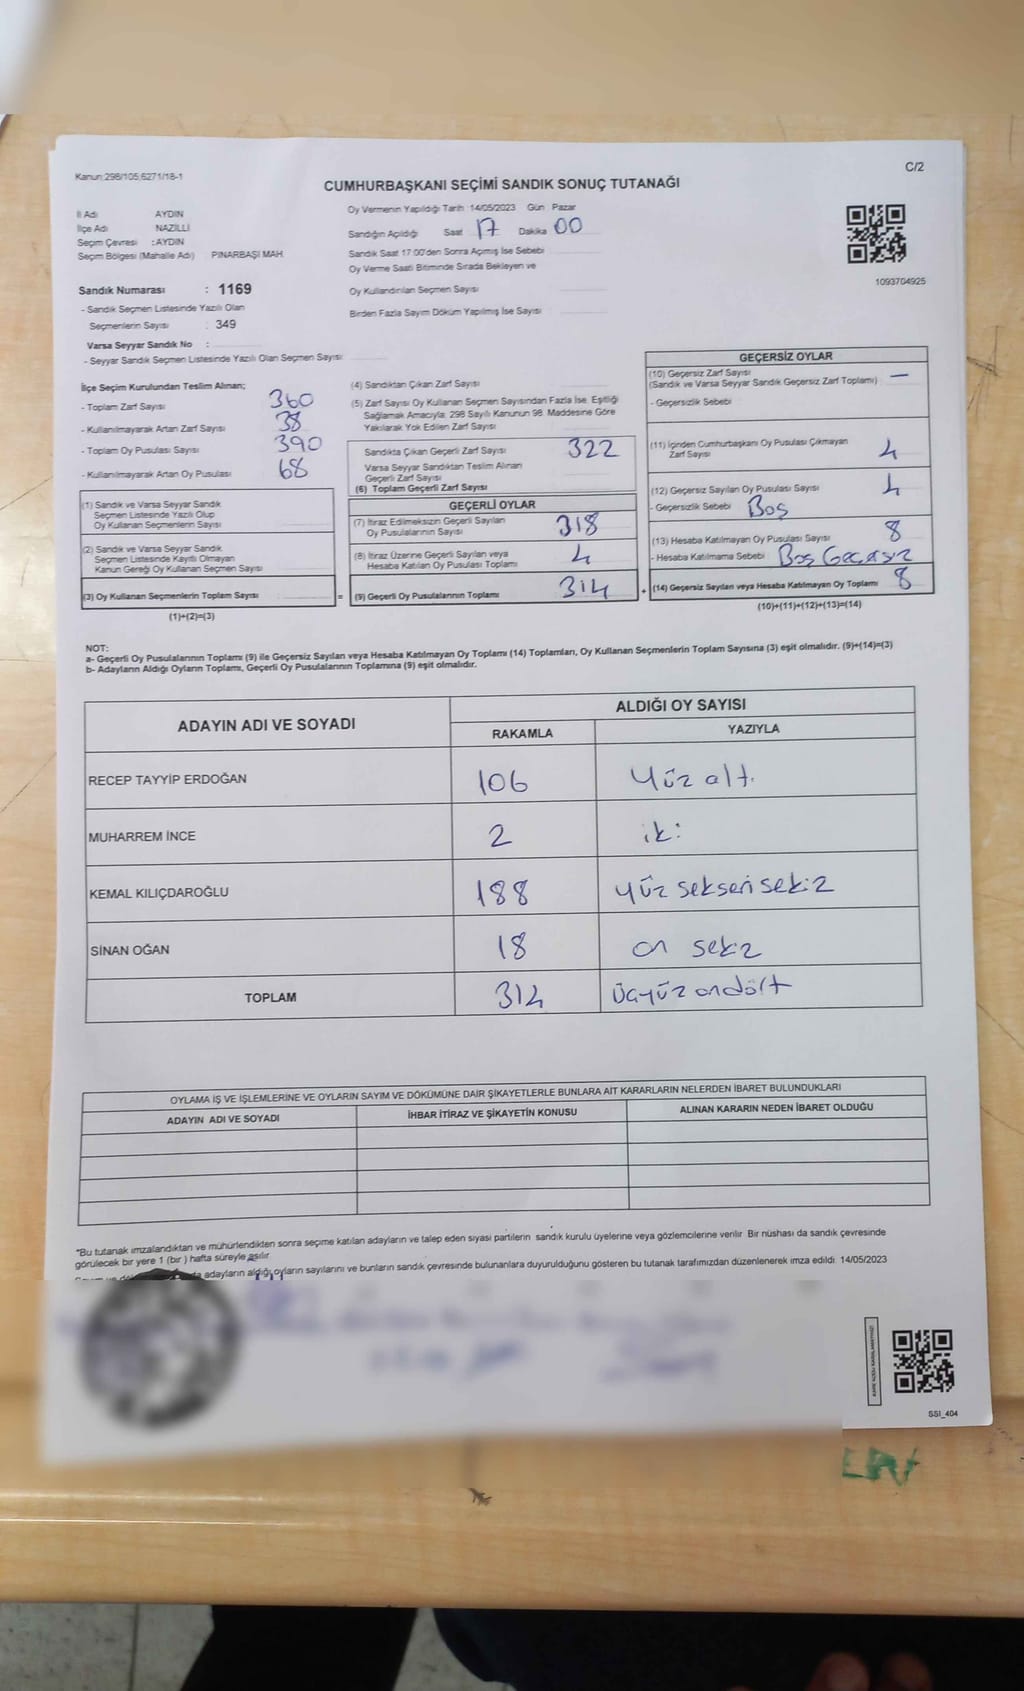 Kanun:298/105,6271/18-1
C/2
CUMHURBAŞKANI SEÇİMİ SANDIK SONUÇ TUTANAĞI
İl Adı AYDIN
İlçe Adı NAZİLLİ
Seçim Çevresi : AYDIN
Seçim Bölgesi (Mahalle Adı) PINARBAŞI MAH.
Sandık Numarası : 1169
- Sandık Seçmen Listesinde Yazılı Olan
Seçmenlerin Sayısı : 349
Varsa Seyyar Sandık No :
- Seyyar Sandık Seçmen Listesinde Yazılı Olan Seçmen Sayısı:
Oy Vermenin Yapıldığı Tarih :14/05/2023 Gün : Pazar
Sandığın Açıldığı Saat 17 Dakika 00
Sandık Saat 17:00'den Sonra Açılmış İse Sebebi
Oy Verme Saati Bitiminde Sırada Bekleyen ve
Oy Kullandırılan Seçmen Sayısı
Birden Fazla Sayım Döküm Yapılmış İse Sayısı
1093704925
İlçe Seçim Kurulundan Teslim Alınan;
- Toplam Zarf Sayısı 360
- Kullanılmayarak Artan Zarf Sayısı 38
- Toplam Oy Pusulası Sayısı 390
- Kullanılmayarak Artan Oy Pusulası 68
(1) Sandık ve Varsa Seyyar Sandık
Seçmen Listesinde Yazılı Olup
Oy Kullanan Seçmenlerin Sayısı
(2) Sandık ve Varsa Seyyar Sandık
Seçmen Listesinde Kayıtlı Olmayan
Kanun Gereği Oy Kullanan Seçmen Sayısı
(3) Oy Kullanan Seçmenlerin Toplam Sayısı
(1)+(2)=(3)
=
(4) Sandıktan Çıkan Zarf Sayısı
(5) Zarf Sayısı Oy Kullanan Seçmen Sayısından Fazla İse, Eşitliği
Sağlamak Amacıyla; 298 Sayılı Kanunun 98. Maddesine Göre
Yakılarak Yok Edilen Zarf Sayısı
Sandıkta Çıkan Geçerli Zarf Sayısı 322
Varsa Seyyar Sandıktan Teslim Alınan
Geçerli Zarf Sayısı
(6) Toplam Geçerli Zarf Sayısı
GEÇERLİ OYLAR
(7) İtiraz Edilmeksizin Geçerli Sayılan
Oy Pusulalarının Sayısı 318
(8) İtiraz Üzerine Geçerli Sayılan veya
Hesaba Katılan Oy Pusulası Toplamı 4
(9) Geçerli Oy Pusulalarının Toplamı 314
+
GEÇERSİZ OYLAR
(10) Geçersiz Zarf Sayısı
(Sandık ve Varsa Seyyar Sandık Geçersiz Zarf Toplamı) —
- Geçersizlik Sebebi
(11) İçinden Cumhurbaşkanı Oy Pusulası Çıkmayan
Zarf Sayısı 4
(12) Geçersiz Sayılan Oy Pusulası Sayısı 4
- Geçersizlik Sebebi Boş
(13) Hesaba Katılmayan Oy Pusulası Sayısı 8
- Hesaba Katılmama Sebebi Boş Geçersiz
(14) Geçersiz Sayılan veya Hesaba Katılmayan Oy Toplamı 8
(10)+(11)+(12)+(13)=(14)
NOT:
a- Geçerli Oy Pusulalarının Toplamı (9) ile Geçersiz Sayılan veya Hesaba Katılmayan Oy Toplamı (14) Toplamları, Oy Kullanan Seçmenlerin Toplam Sayısına (3) eşit olmalıdır. (9)+(14)=(3)
b- Adayların Aldığı Oyların Toplamı, Geçerli Oy Pusulalarının Toplamına (9) eşit olmalıdır.
ADAYIN ADI VE SOYADI ALDIĞI OY SAYISI
RAKAMLA YAZIYLA
RECEP TAYYİP ERDOĞAN 106 Yüz altı
MUHARREM İNCE 2 iki
KEMAL KILIÇDAROĞLU 188 yüz seksen sekiz
SİNAN OĞAN 18 on sekiz
TOPLAM 314 üçyüz ondört
OYLAMA İŞ VE İŞLEMLERİNE VE OYLARIN SAYIM VE DÖKÜMÜNE DAİR ŞİKAYETLERLE BUNLARA AİT KARARLARIN NELERDEN İBARET BULUNDUKLARI
ADAYIN ADI VE SOYADI İHBAR İTİRAZ VE ŞİKAYETİN KONUSU ALINAN KARARIN NEDEN İBARET OLDUĞU
*Bu tutanak imzalandıktan ve mühürlendikten sonra seçime katılan adayların ve talep eden siyasi partilerin sandık kurulu üyelerine veya gözlemcilerine verilir. Bir nüshası da sandık çevresinde
görülecek bir yere 1 (bir) hafta süreyle asılır.
adayların aldığı oyların sayılarını ve bunların sandık çevresinde bulunanlara duyurulduğunu gösteren bu tutanak tarafımızdan düzenlenerek imza edildi. 14/05/2023
SSI_404